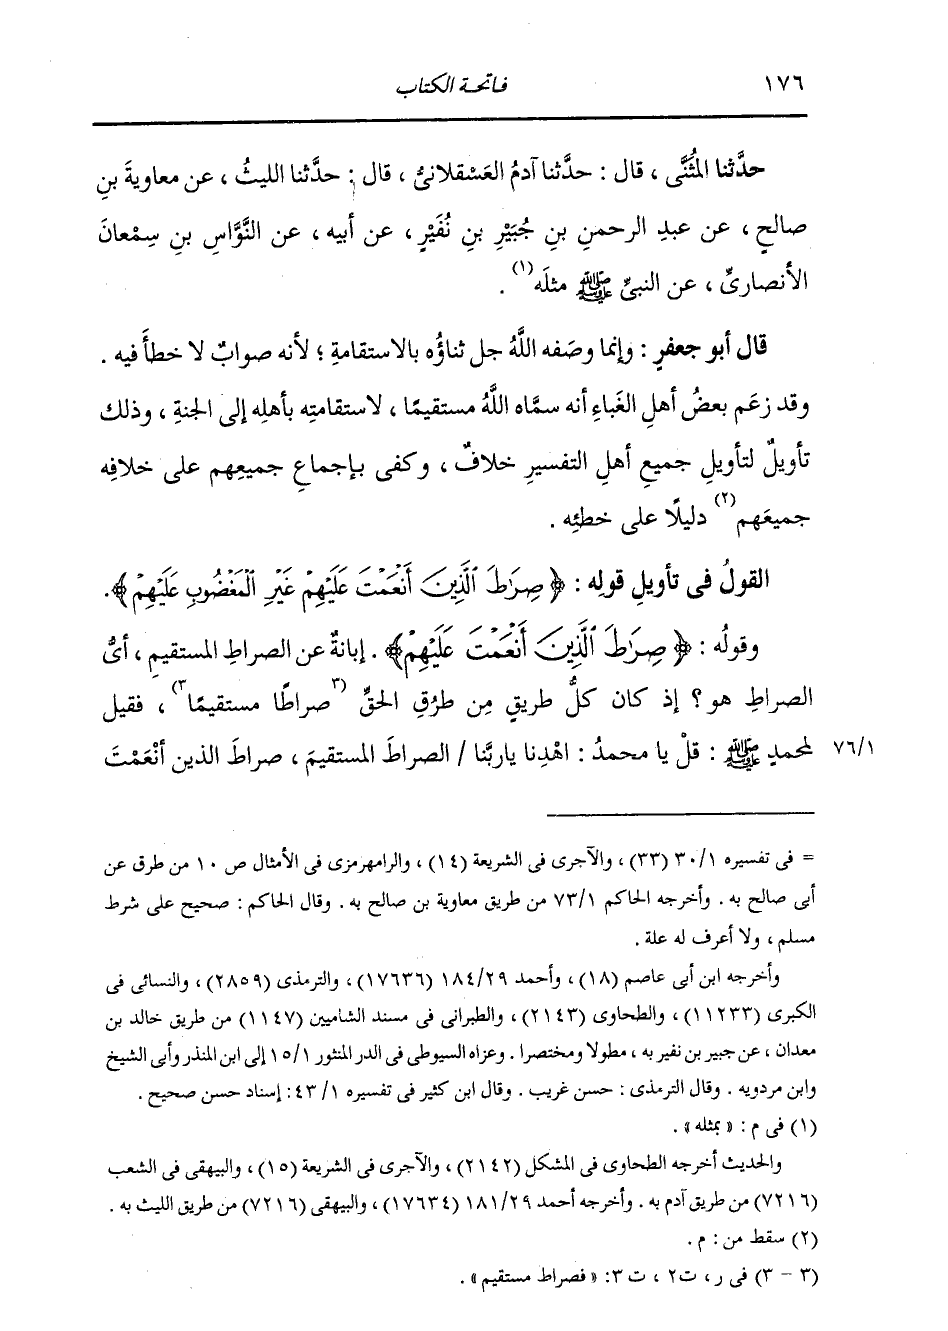 ١٧٦
فاتحة الكتاب
حدَّثنا المُثَنَّى ، قال : حدَّثنا آدمُ العَسْقلانىُّ ، قال : حدَّثنا الليثُ ، عن معاويةَ بنِ
صالحٍ ، عن عبدِ الرحمنِ بنِ جُبَيْرِ بنِ نُفَيْرٍ ، عن أبيه ، عن النَّوَّاسِ بنِ سِمْعانَ
الأنصارىِّ ، عن النبىِّ ﷺ مثلَه(١) .
قال أبو جعفرٍ : وإنما وصَفه اللَّهُ جل ثناؤُه بالاستقامةِ ؛ لأنه صوابٌ لا خطأَ فيه .
وقد زعَم بعضُ أهلِ الغَباءِ أنه سمَّاه اللَّهُ مستقيمًا ، لاستقامتِه بأهلِه إلى الجنةِ ، وذلك
تأويلٌ لتأويلِ جميعِ أهلِ التفسيرِ خلافٌ ، وكفى بإجماعِ جميعِهم على خلافِه
جميعَهم(٢) دليلًا على خطئِه .
القولُ فى تأويلِ قولِه : ﴿ صِرَٰطَ ٱلَّذِينَ أَنْعَمْتَ عَلَيْهِمْ غَيْرِ ٱلْمَغْضُوبِ عَلَيْهِمْ ﴾ .
وقولُه : ﴿ صِرَٰطَ ٱلَّذِينَ أَنْعَمْتَ عَلَيْهِمْ ﴾ . إبانةٌ عن الصراطِ المستقيمِ ، أىُّ
الصراطِ هو ؟ إذ كان كلُّ طريقٍ مِن طرُقِ الحقِّ (٣صراطًا مستقيمًا٣) ، فقيل
لمحمدٍ ﷺ : قلْ يا محمدُ : اهْدِنا ياربَّنا / الصراطَ المستقيمَ ، صراطَ الذين أنْعَمْتَ
٧٦/١
= فى تفسيره ٣٠/١ (٣٣) ، والآجرى فى الشريعة (١٤) ، والرامهرمزى فى الأمثال ص ١٠ من طرق عن
أبى صالح به . وأخرجه الحاكم ٧٣/١ من طريق معاوية بن صالح به . وقال الحاكم : صحيح على شرط
مسلم ، ولا أعرف له علة .
وأخرجه ابن أبى عاصم (١٨) ، وأحمد ١٨٤/٢٩ (١٧٦٣٦) ، والترمذى (٢٨٥٩) ، والنسائى فى
الكبرى (١١٢٣٣) ، والطحاوى (٢١٤٣) ، والطبرانى فى مسند الشاميين (١١٤٧) من طريق خالد بن
معدان ، عن جبير بن نفير به ، مطولا ومختصرا . وعزاه السيوطى فى الدر المنثور ١٥/١ إلى ابن المنذر وأبى الشيخ
وابن مردويه . وقال الترمذى : حسن غريب . وقال ابن كثير فى تفسيره ٤٣/١ : إسناد حسن صحيح .
(١) فى م : « بمثله » .
والحديث أخرجه الطحاوى فى المشكل (٢١٤٢) ، والآجرى فى الشريعة (١٥) ، والبيهقى فى الشعب
(٧٢١٦) من طريق آدم به . وأخرجه أحمد ١٨١/٢٩ (١٧٦٣٤) ، والبيهقى (٧٢١٦) من طريق الليث به .
(٢) سقط من : م .
(٣ - ٣) فى ر ، ت ٢ ، ت ٣ : « فصراط مستقيم » .